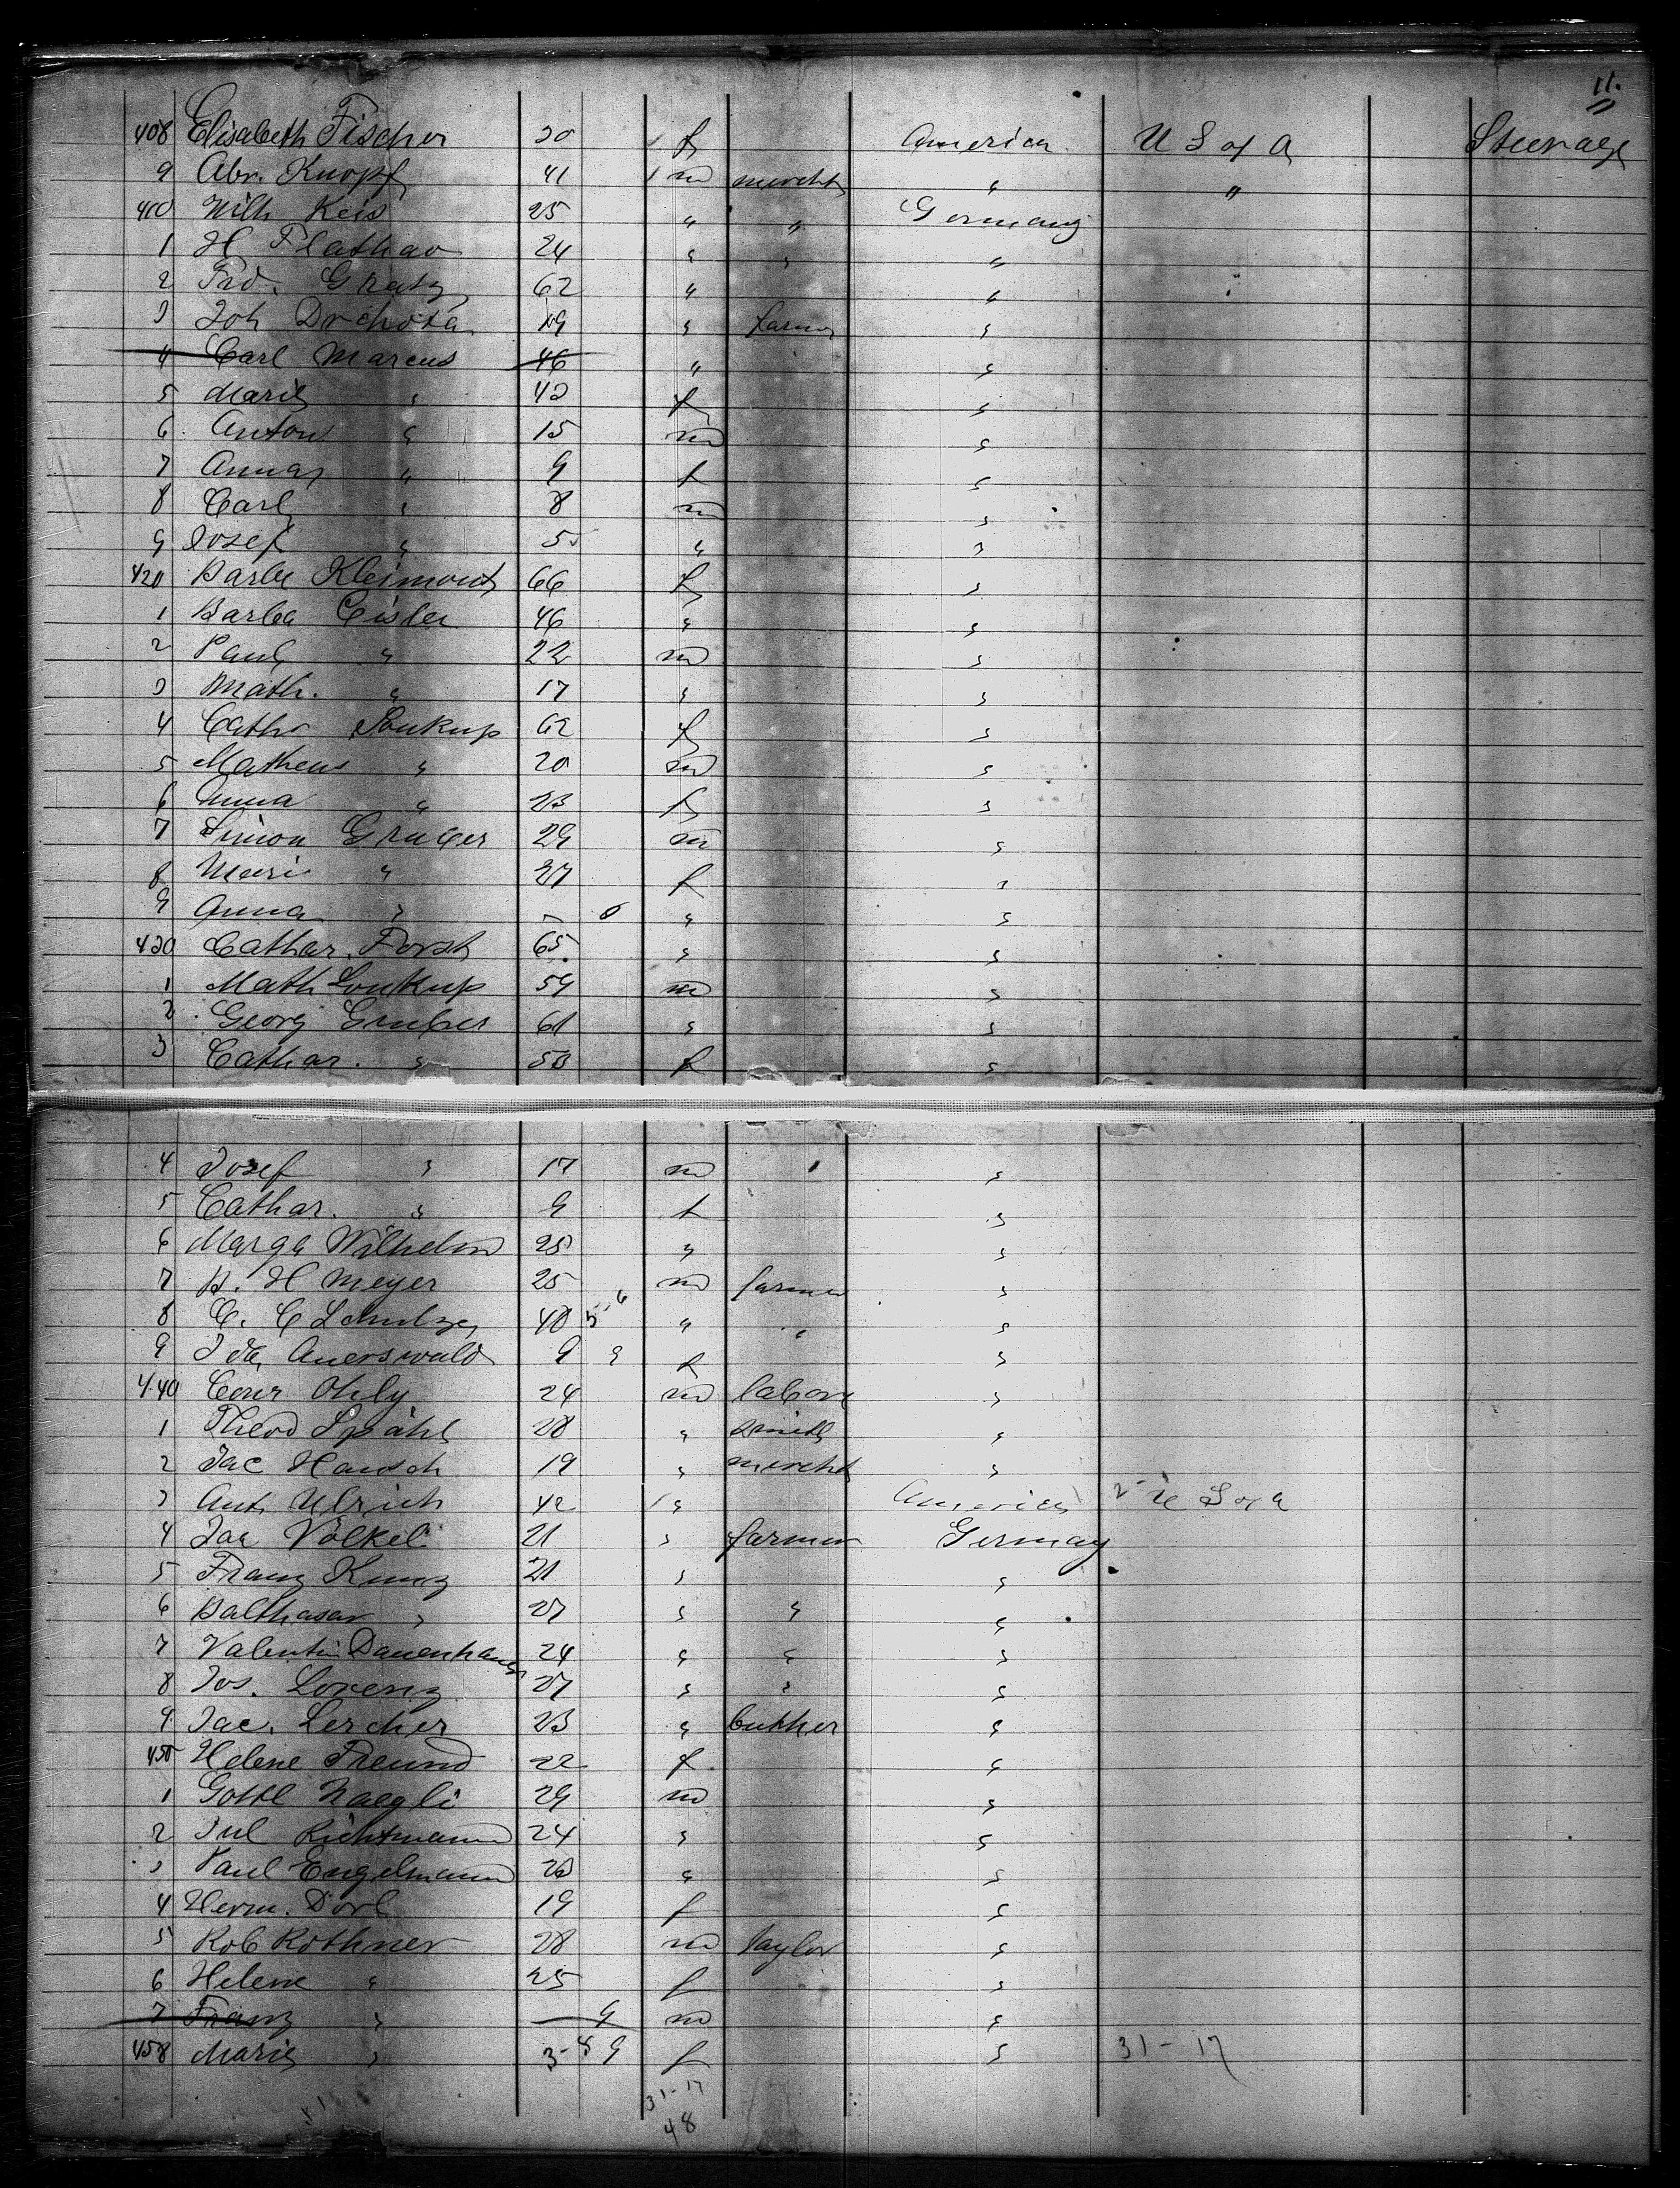 11.
408 Elisabeth Fischer 20 f America U S of A Steerage
9 Abr. Knopf 41 m mercht " "
410 Wilh Keis 25 " " Germany
1 H Flathav 24 " " "
2 Frd. Gratz 62 " "
3 Joh Drchota 19 " farmer "
4 Carl Marcus 46 " "
5 Marie " 42 f "
6 Anton " 15 m "
7 Anna " 9 f "
8 Carl " 8 m "
9 Josef " 5 " "
420 Barbe Kleimout 66 f "
1 Barba Eisler 46 " "
2 Paul " 22 m "
3 Math. " 17 " "
4 Cathr Soukup 62 f "
5 Matheus " 20 m "
6 Anna " 23 f "
7 Simon Gruber 29 m "
8 Marie " 27 f "
9 Anna " – 6 " "
430 Cathar. Forst 65 " "
1 Math Soukup 59 m "
2 Georg Gruber 61 " "
3 Cathar. " 50 f "
4 Josef " 17 m "
5 Cathar. " 9 f "
6 Marga Wilhelm 25 " "
7 H. H Meyer 25 m farmer "
8 C. C Schulze 40 " " "
9 Ida Auerswald 9 9 f "
440 Conr Ohly 24 m labore "
1 Theod Spähl 28 " smith "
2 Jac Hausch 19 " mercht "
3 Ant. Ulrich 42 " America U S of A
4 Jac Völkel 21 " farmer Germay
5 Franz Kunz 21 " "
6 Balthasar " 27 " " "
7 Valentin Dauenhauer 24 " " "
8 Jos. Lorenz 27 " " "
9 Jac. Lercher 23 " buthher "
450 Helene Freund 22 f "
1 Gottl Naegli 29 m "
2 Jul Richtmann 24 " "
3 Paul Engelmann 23 " "
4 Herm. Dorl 19 f "
5 Rob Rothner 28 m Taylor "
6 Helene " 25 f "
7 Franz " – 9 m "
458 Marie " 3-4 9 f " 31-17
31-17
48